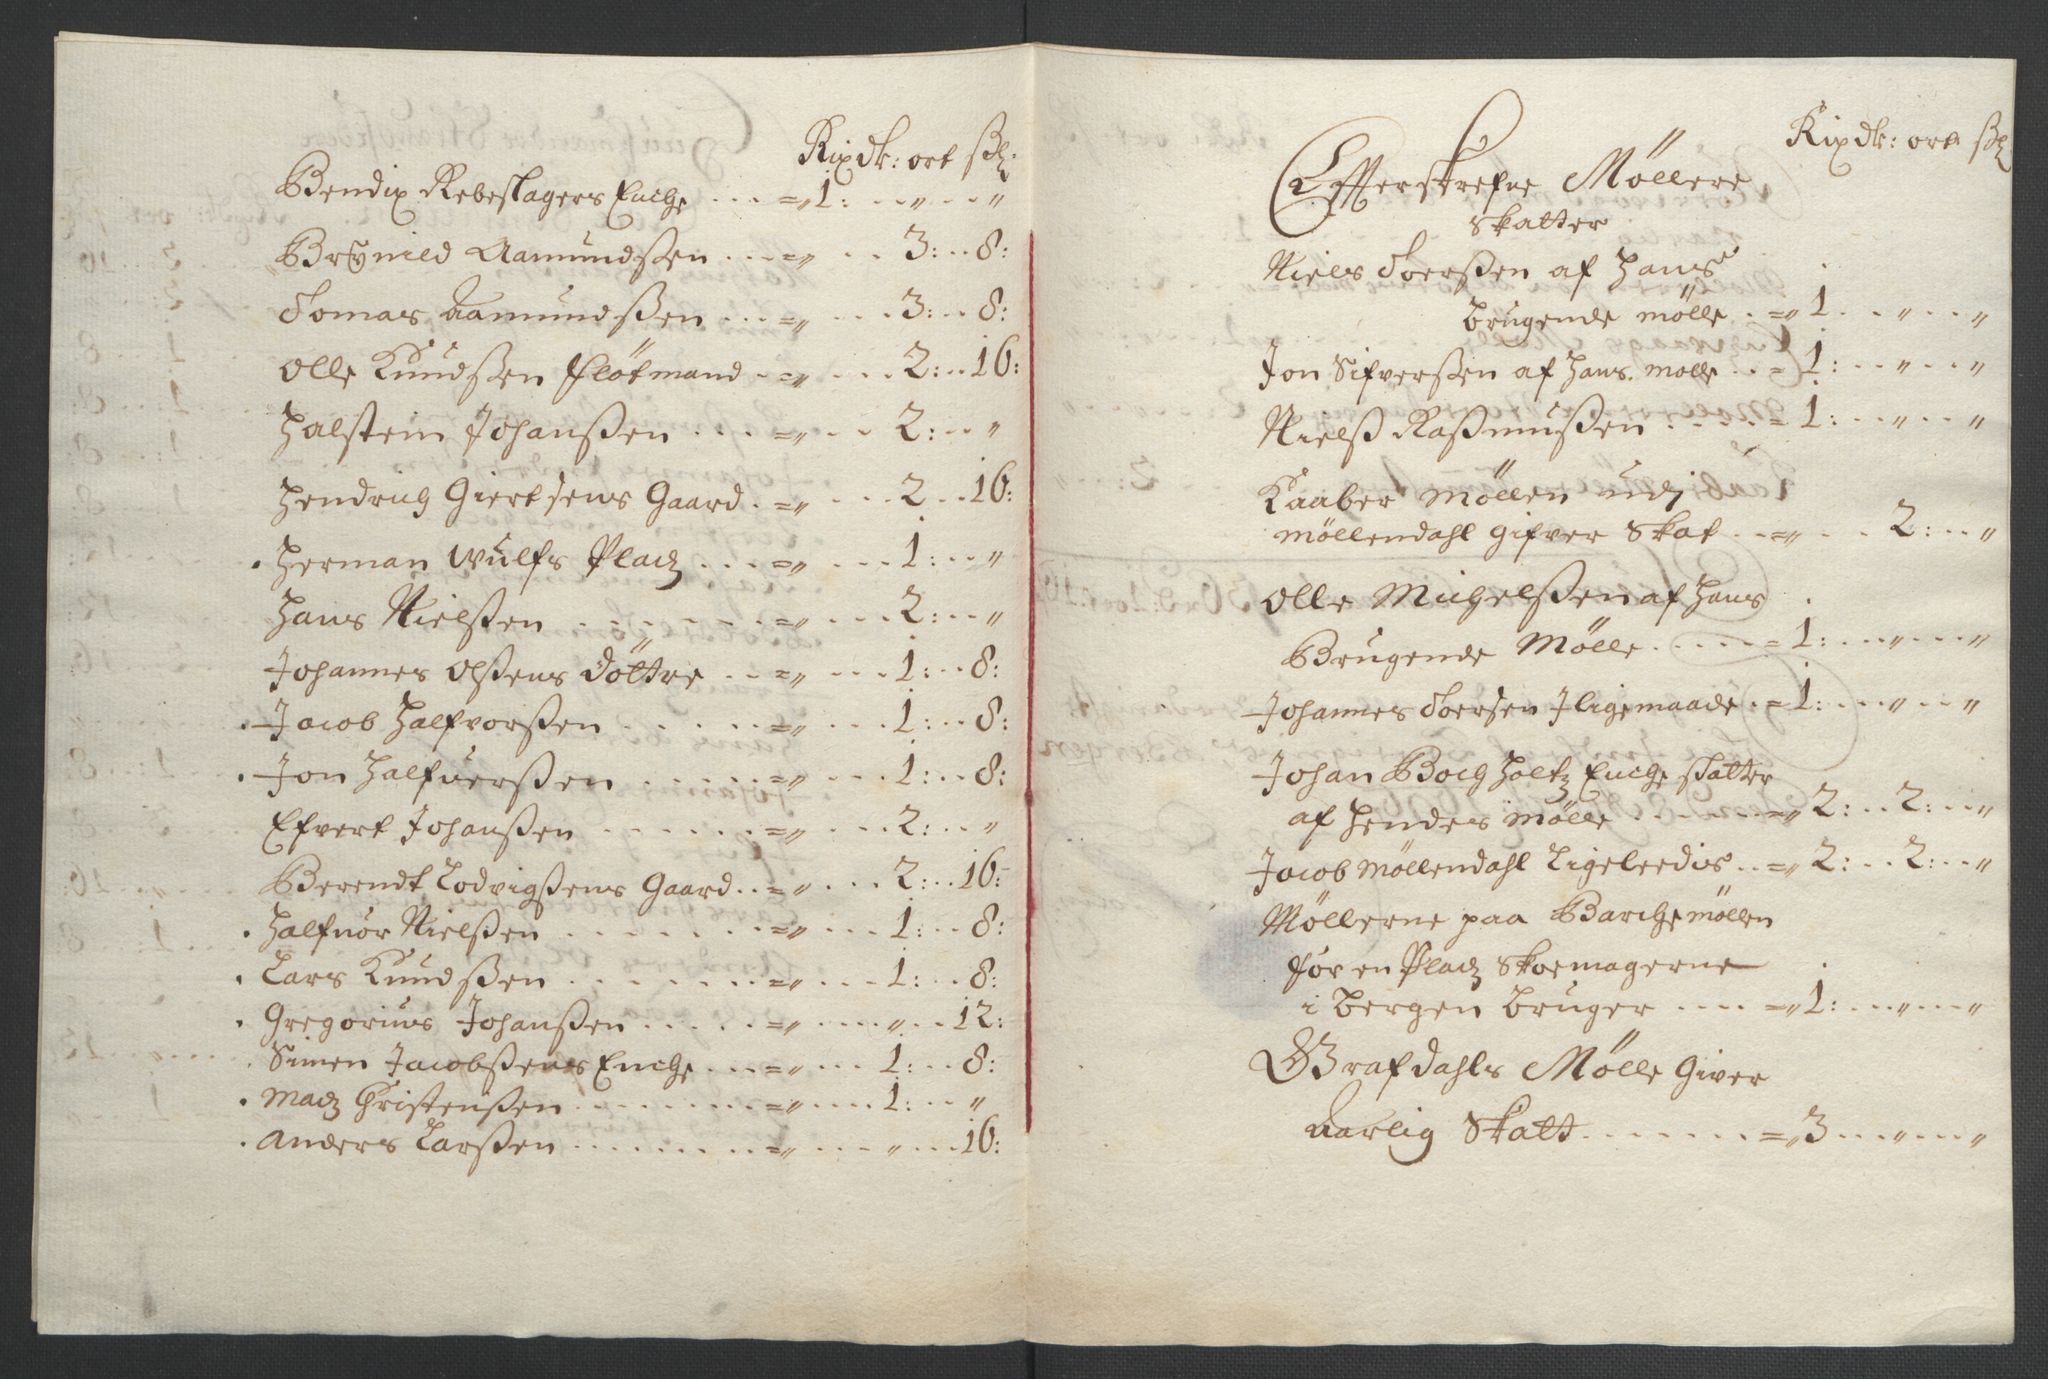 Rixdlr: ort ß:
Bendix Rebeslagers Enche ... =„ 1: ..„..„
Brynild Aamundßen ... =„ .. 3: .. 8:
Tomas Aamundßen ... =„ ... 3: .. 8:
Olle Knudßen Fløtmand . =„ ... 2: .. 16:
Halstein Johanßen ... =„ ... 2: .. „
Hendrich Giertsens Gaard . =„ ... 2 .. 16:
. Herman Wulfs Pladz ... =„ ... 1: .. „
Hans Nielßen ...... =„ ... 2: .. „
Johannes Olßens Døttre ... =„ ... 1: .. 8:
. Jacob Halfvorßen ..... =„ ... 1: .. 8:
. Jon Halfuerßen ..... =„ ... 1: .. 8:
Efvert Johanßen ...... =„ ... 2: .. „
Berendt Lodvigßens Gaard .. =„ ... 2: .. 16:
. Halfuor Nielßen ....... =„ ... 1: .. 8:
. Lars Knudßen ....... =„ ... 1: .. 8:
. Gregorius Johanßen ..... =„ ....„.. 12:
. Simen Jacobßens Enche ... =„ ... 1: .. 8:
. Madz Christenßen ....... =„ .... 1: .. „
. Anders Larßen ........ =„ ... „ ... 16:
Rixdlr: ort ß
Effterskrefne Møllere
skatter
Niels Toerßen af Hans
brugende mølle .. =„ 1 . .. „ .. „
Jon Sifverßen af Hans mølle .. = 1: ..„..„
Nielß Raßmußen ..... = 1: ..„..„
Kaaber Møllen udj
møllendahl gifver Skat .. =„ .. 2: .. „
Olle Michelßen af Hans
Brugende Mølle ..... = 1: ...„...„
Johannes Toersen Jligemaade . = 1: ..„..„
Johan Bochholtz Enche skatter
af Hendes mølle ...... =„ 2: .. 2: .. „
Jacob Møllendahl Ligeleedis .. =„ 2: .. 2: .. „
Møllerne paa Barchemøllen
for en Pladz Skoemagerne
i Bergen bruger .... =„ 1: ...„...„
Grafdahls Mølle Giver
Aarlig Skatt ....... =„ 3 ...„...„